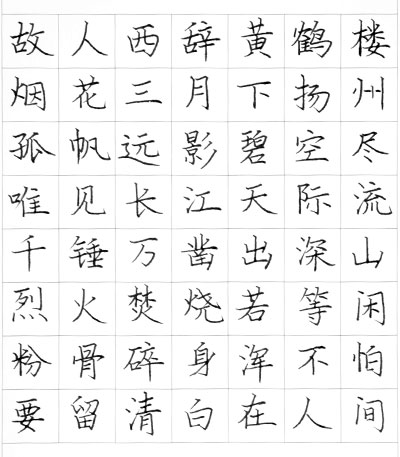 故人西辞黄鹤楼
烟花三月下扬州
孤帆远影碧空尽
唯见长江天际流
千锤万凿出深山
烈火焚烧若等闲
粉骨碎身浑不怕
要留清白在人间